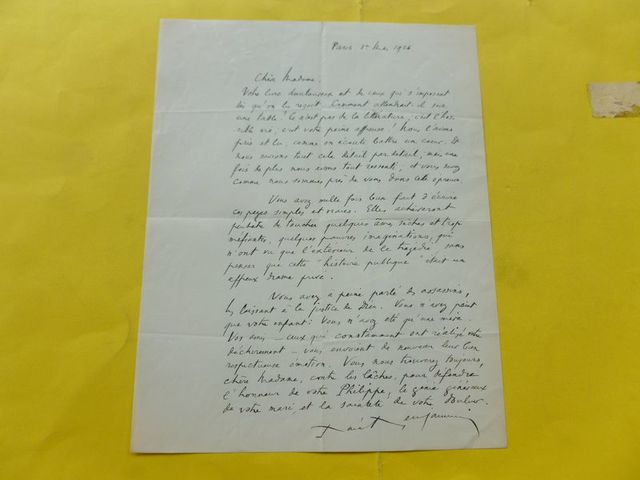 Paris 1er Mai 1926
Chère Madame,
Votre livre douloureux est de ceux qui s'imposent
dès qu'on les reçoit. Comment attendrait-il sur
une table? Ce n'est pas de la littérature, c'est l'hor-
rible vrai, c'est votre peine affreuse! Nous l'avons
pris et lu, comme on écoute battre un cœur. Et
nous savions tout cela détail par détail, mais une
fois de plus nous avons tout ressenti, et vous savez
comme nous sommes près de vous dans cette épreuve.
Vous avez mille fois bien fait d'écrire
ces pages simples et vraies. Elles achèveront
peut-être de toucher quelques âmes sèches et trop
méfiantes, quelques pauvres imaginations, qui
n'ont vu que l'extérieur de la tragédie sans
penser que cette "histoire publique" était un
affreux drame privé.
Vous avez à peine parlé des assassins,
les laissant à la justice de Dieu. Vous n'avez peint
que votre enfant: vous n'avez été qu'une mère.
Vos amis - ceux qui constamment ont réalisé votre
déchirement - vous envoient de nouveau leur bien
respectueuse émotion. Vous nous trouverez toujours,
chère Madame, contre les lâches, pour défendre
l'honneur de votre Philippe, le génie généreux
de votre mari et la sainteté de votre douleur.